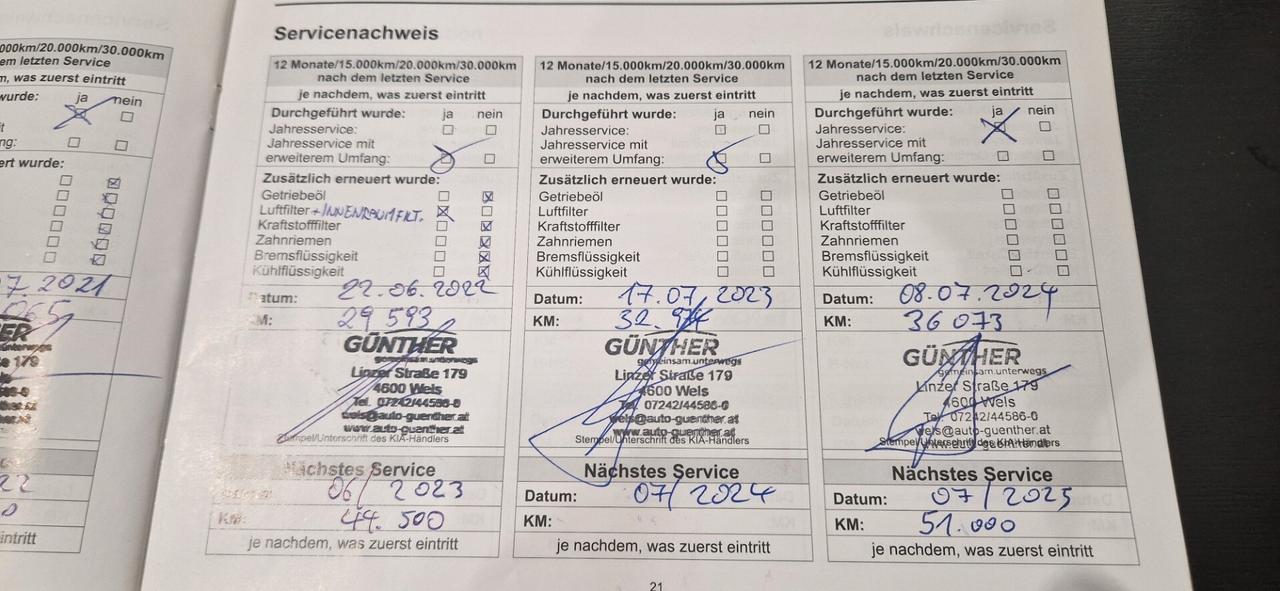 000km/20.000km/30.000km
em letzten Service
n, was zuerst eintritt
wurde: ja nein
ng:
ert wurde:
7 2021
065
ER
e 179
22
0
intritt
Servicenachweis
12 Monate/15.000km/20.000km/30.000km
nach dem letzten Service
je nachdem, was zuerst eintritt
Durchgeführt wurde: ja nein
Jahresservice:
Jahresservice mit
erweiterem Umfang:
Zusätzlich erneuert wurde:
Getriebeöl
Luftfilter +INNENRAUMFILT.
Kraftstofffilter
Zahnriemen
Bremsflüssigkeit
Kühlflüssigkeit
Datum: 22.06.2022
KM: 29 593
GÜNTHER
gemeinsam.unterwegs
Linzer Straße 179
4600 Wels
Tel. 07242/44586-0
wels@auto-guenther.at
www.auto-guenther.at
Stempel/Unterschrift des KIA-Händlers
Nächstes Service
06/ 2023
KM: 44.500
je nachdem, was zuerst eintritt
12 Monate/15.000km/20.000km/30.000km
nach dem letzten Service
je nachdem, was zuerst eintritt
Durchgeführt wurde: ja nein
Jahresservice:
Jahresservice mit
erweiterem Umfang:
Zusätzlich erneuert wurde:
Getriebeöl
Luftfilter
Kraftstofffilter
Zahnriemen
Bremsflüssigkeit
Kühlflüssigkeit
Datum: 17.07.2023
KM:
GÜNTHER
gemeinsam.unterwegs
Linzer Straße 179
4600 Wels
Tel. 07242/44586-0
wels@auto-guenther.at
www.auto-guenther.at
Stempel/Unterschrift des KIA-Händlers
Nächstes Service
Datum: 07/2024
KM:
je nachdem, was zuerst eintritt
12 Monate/15.000km/20.000km/30.000km
nach dem letzten Service
je nachdem, was zuerst eintritt
Durchgeführt wurde: ja nein
Jahresservice:
Jahresservice mit
erweiterem Umfang:
Zusätzlich erneuert wurde:
Getriebeöl
Luftfilter
Kraftstofffilter
Zahnriemen
Bremsflüssigkeit
Kühlflüssigkeit
Datum: 08.07.2024
KM: 36 073
GÜNTHER
gemeinsam.unterwegs
Linzer Straße 179
4600 Wels
Tel. 07242/44586-0
wels@auto-guenther.at
www.auto-guenther.at
Stempel/Unterschrift des KIA-Händlers
Nächstes Service
Datum: 07/2025
KM: 51.000
je nachdem, was zuerst eintritt
21